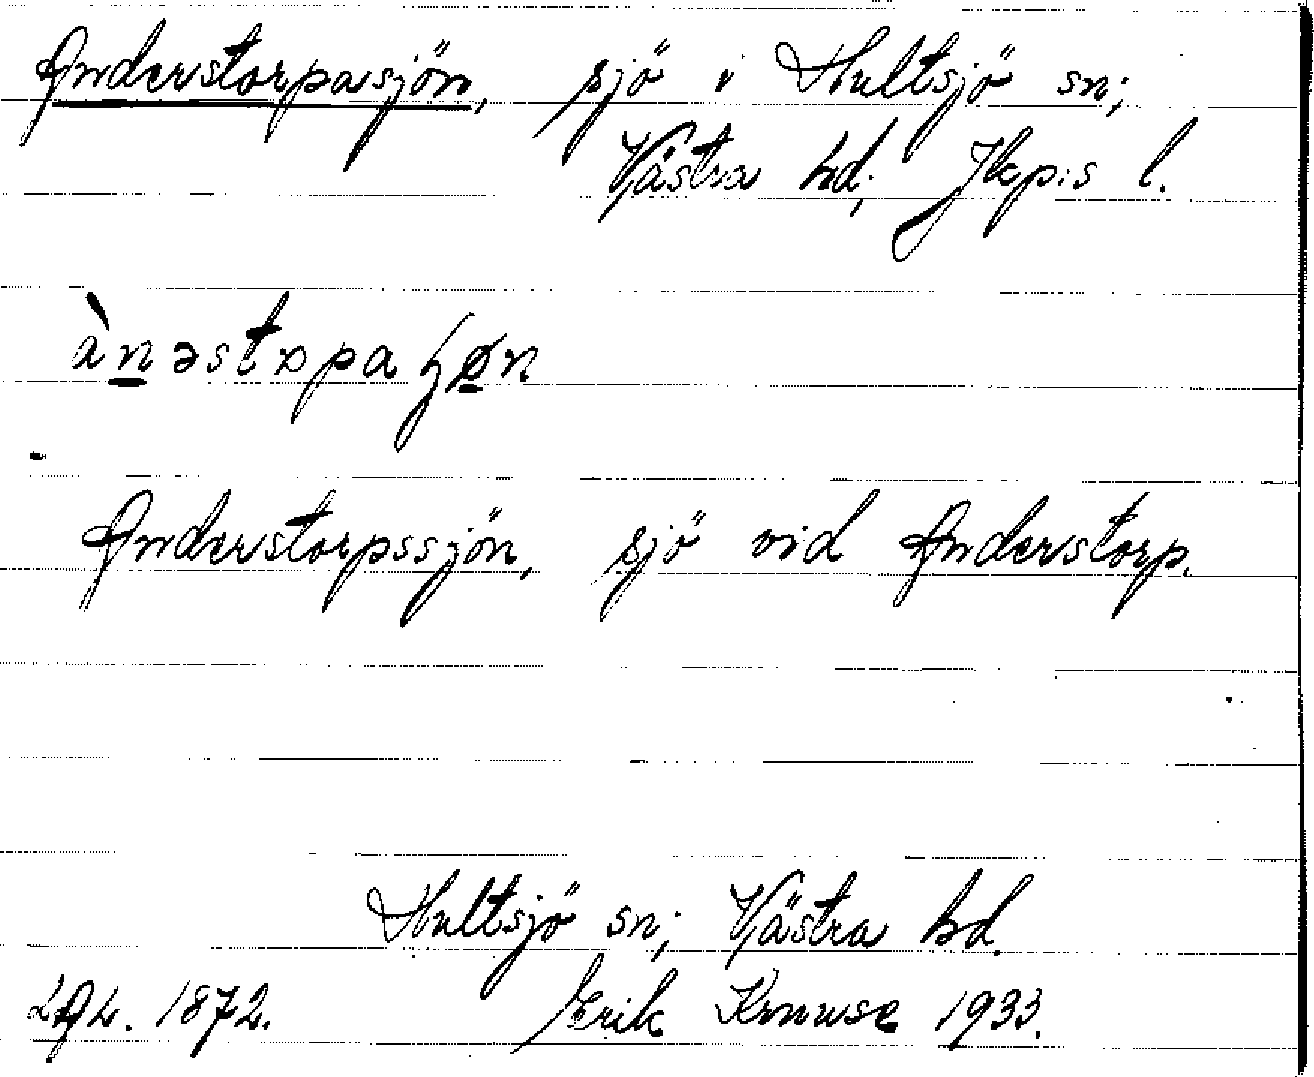 Anderstorpasjön, sjö i Hultsjö sn;
Västra hd; Jkp:s l.
ànəstɔpa ɧøn
Anderstorpssjön, sjö vid Anderstorp.
Hultsjö sn; Västra hd.
1872. Erik 1933.